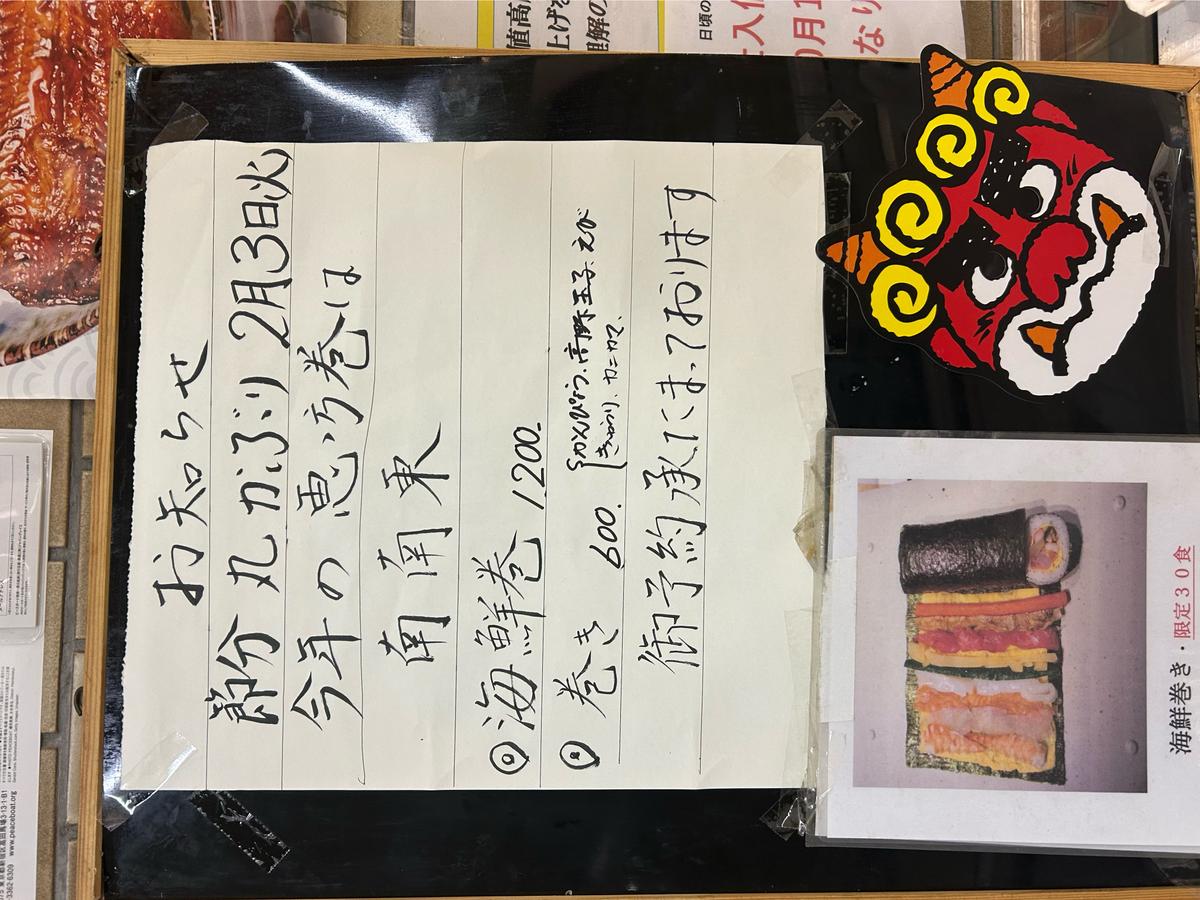 お知らせ
節分 丸かぶり 2月3日火
今年の恵方巻は
南南東
◎海鮮巻 1200.
◎巻き 600.
かんぴょう、高野、玉子、えび
きゅうり、カニカマ、
御予約承たまっております
海鮮巻き・限定30食
値高
上げを
理解の
日頃の
0月1
なり
3-13-1-B1
www.peaceboat.org
-3362-6309